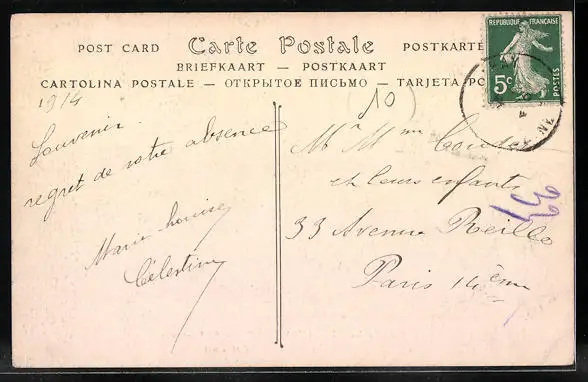 POST CARD Carte Postale POSTKARTE
BRIEFKAART — POSTKAART
CARTOLINA POSTALE — ОТКРЫТОЕ ПИСЬМО — TARJETA PO
REPUBLIQUE FRANÇAISE
5c
POSTES
1914
10
Souvenir
regret de votre absence
Marie Louise
Célestine
Mr Mme
et leurs enfants
33 Avenue Reille
Paris 14ème